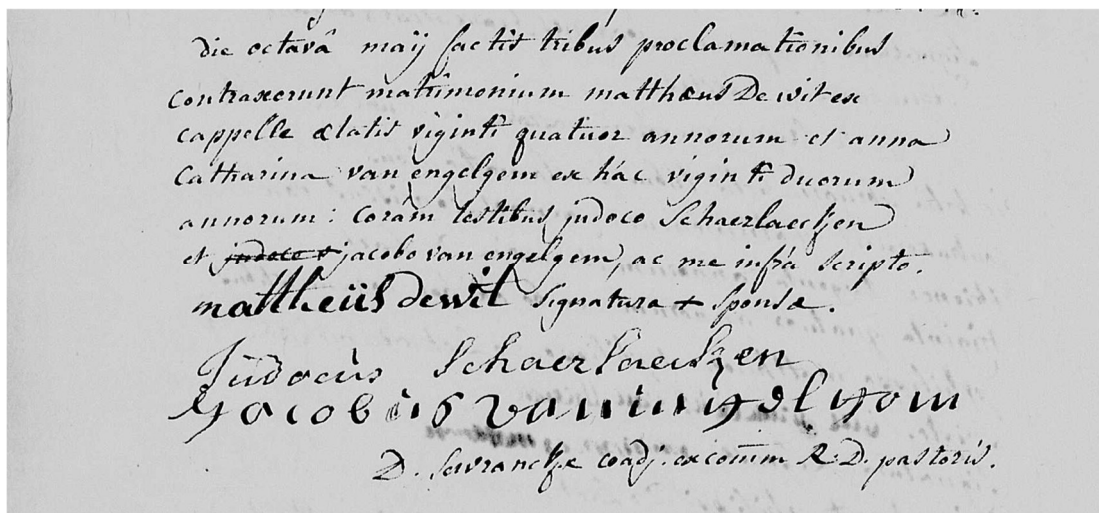 die octavâ maÿ factis tribus proclamationibus
contraxerunt matrimonium mattheus De wit ex
cappelle ætatis viginti quatuor annorum et anna
Catharina van engelgem ex hâc viginti duorum
annorum: coràm testibus judoco Schaerlaecken
et judoco & jacobo van engelgem, ac me infrà scripto.
mattheüs de wit signatura + sponsæ.
Judocus Schaerlaeckzen
Jacobus van ingelgom
D. coadj. ex comm R. D. pastoris.